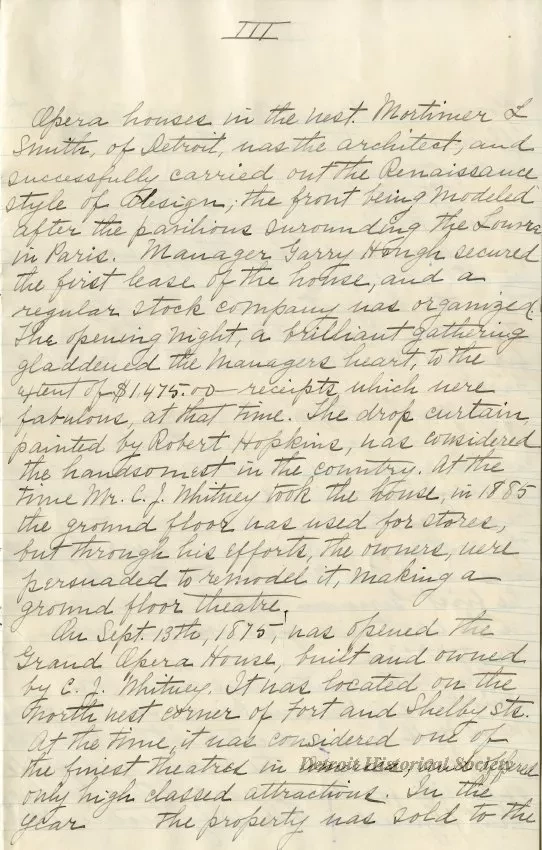 III
Opera houses in the west. Mortimer L
Smith, of Detroit, was the architect, and
successfully carried out the Renaissance
style of design; the front being modeled
after the pavilions surounding the Louvre
in Paris. Manager Garry Hough secured
the first lease of the house, and a
regular stock company was organized.
The opening night, a brilliant gathering
gladdened the managers heart, to the
extent of $1,475.00 receipts which were
fabulous, at that time. The drop curtain,
painted by Robert Hopkins, was considered
the handsomest in the country. At the
time Mr. C. J. Whitney took the house, in 1885
the ground floor was used for stores,
but through his efforts, the owners, were
persuaded to remodel it, making a
ground floor theatre.
On Sept. 13th, 1875, was opened the
Grand Opera House, built and owned
by C. J. Whitney. It was located on the
North west corner of Fort and Shelby sts.
At the time, it was considered one of
the finest theatres in offered
Detroit Historical Society
only high classed attractions. In the
year the property was sold to the